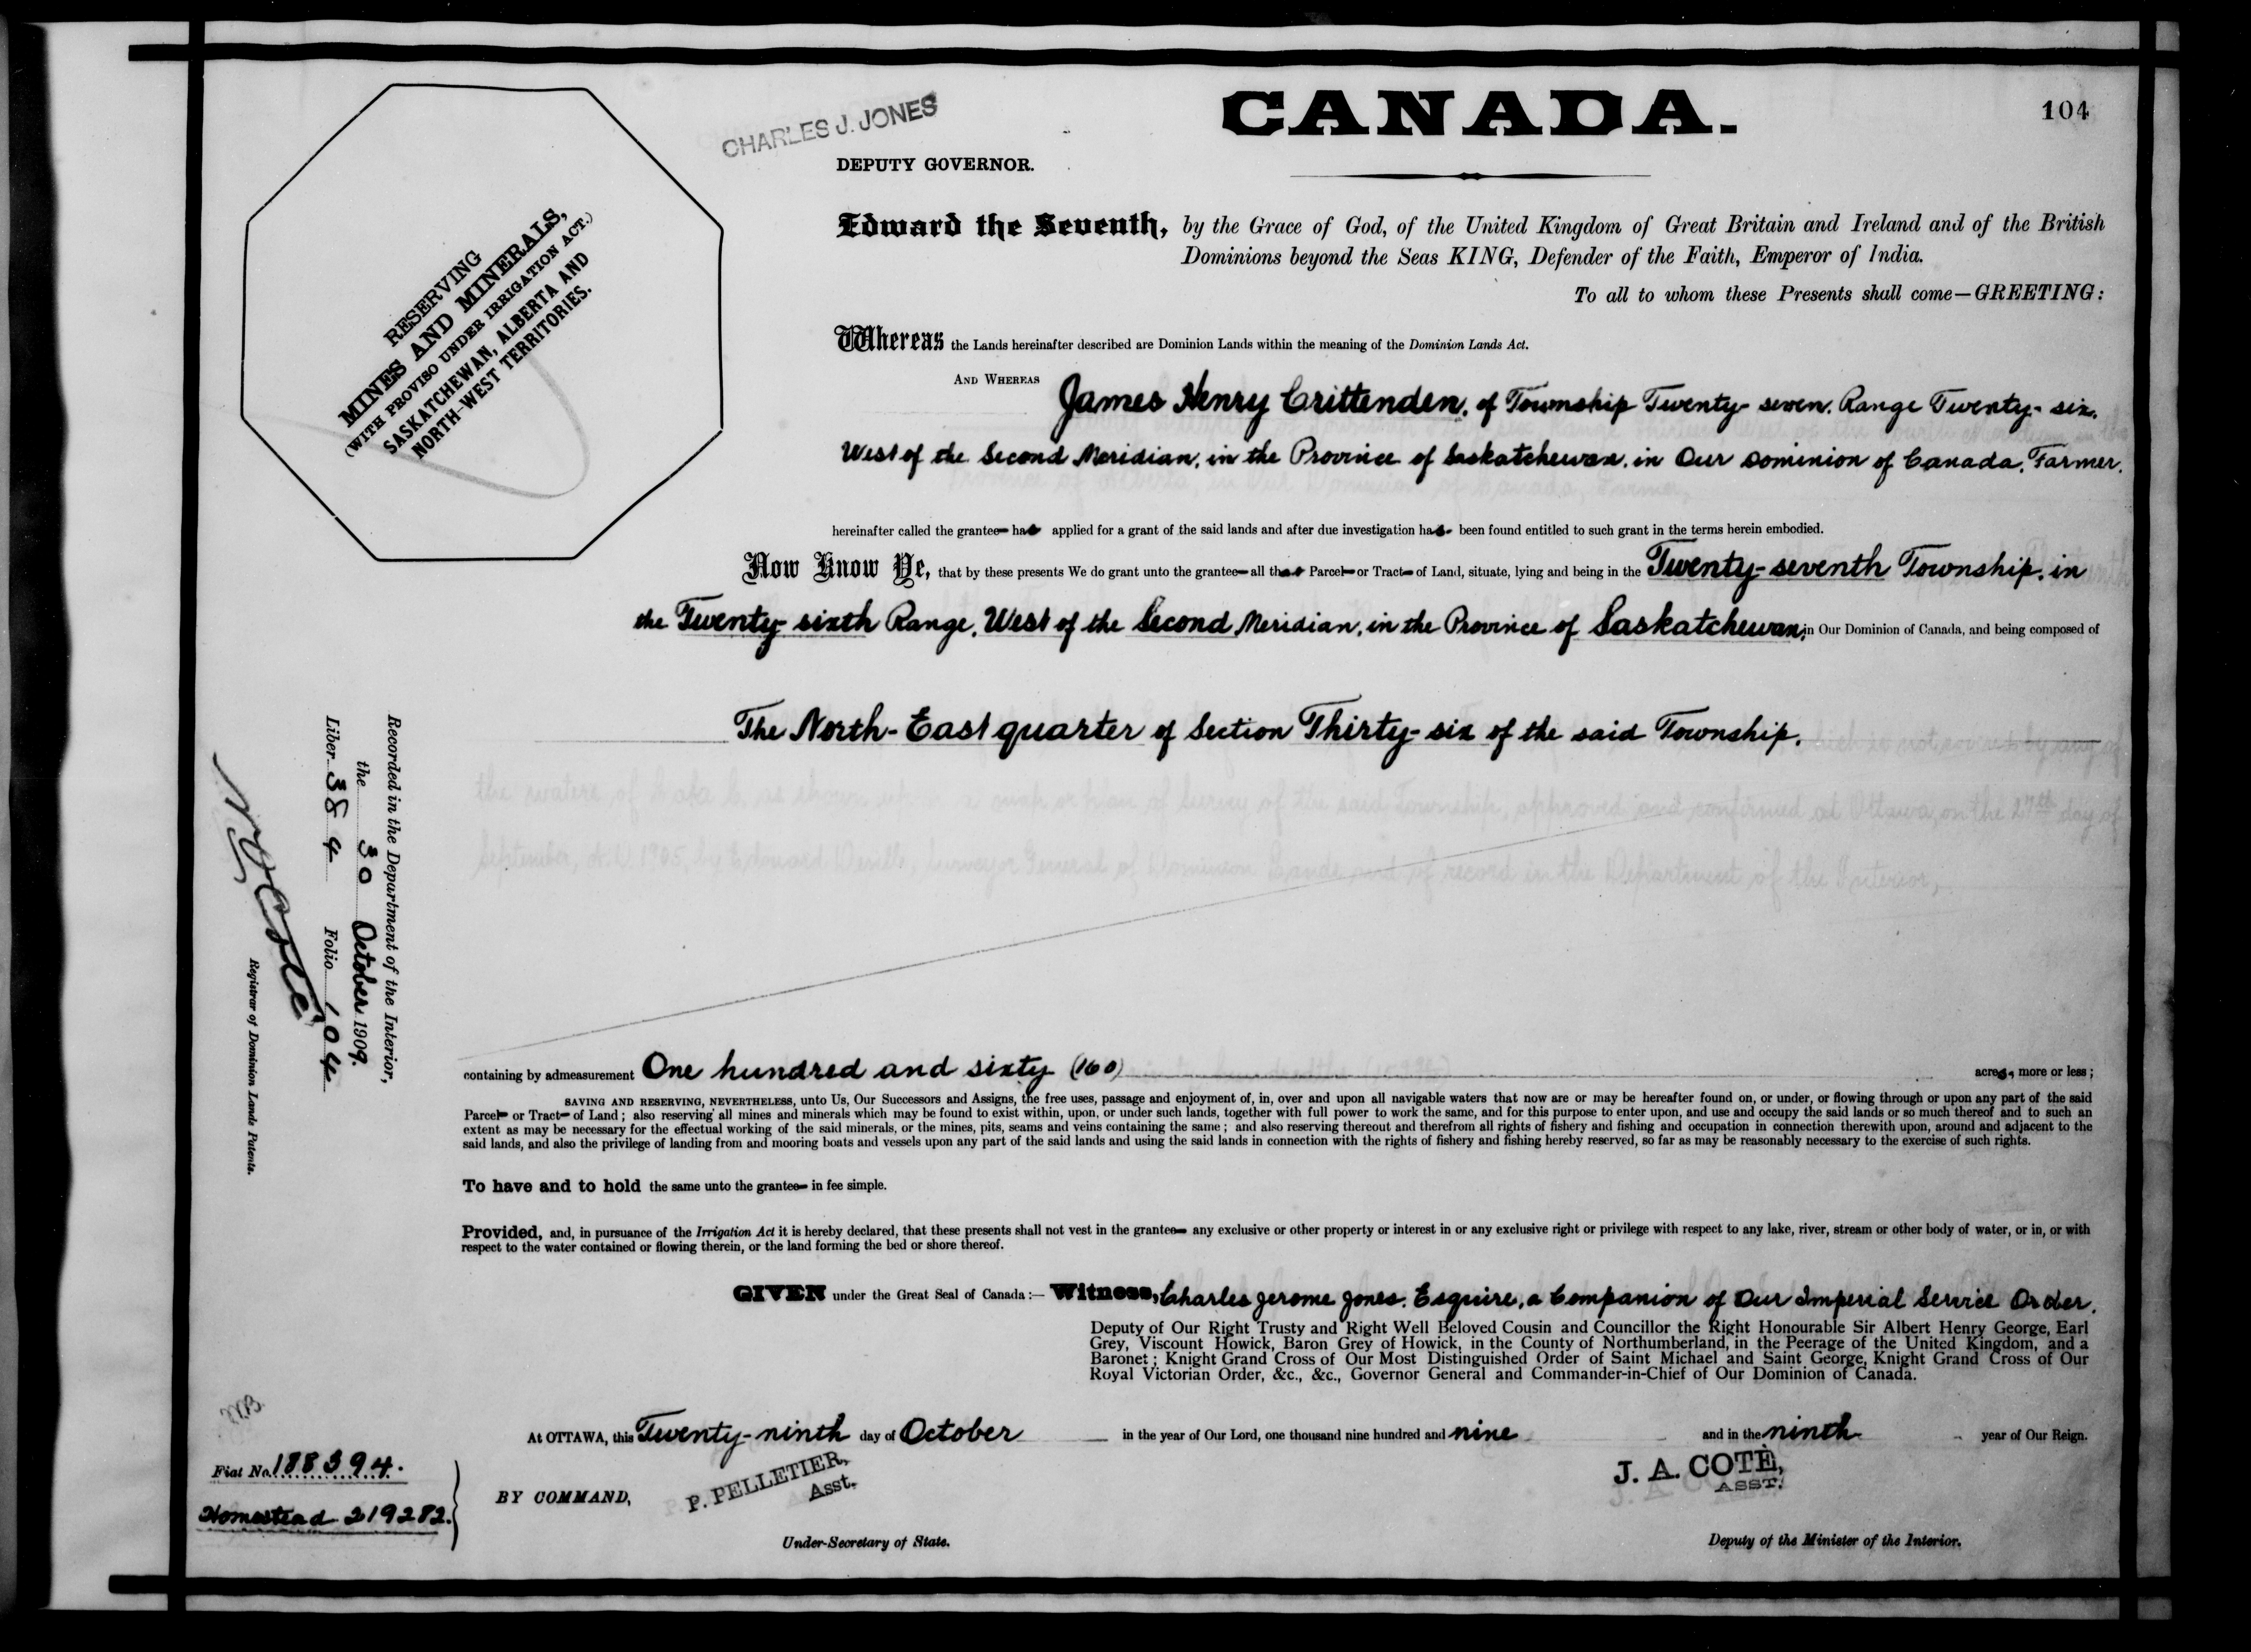 CANADA.
104
CHARLES J. JONES
DEPUTY GOVERNOR.
RESERVING
MINES AND MINERALS,
(WITH PROVISO UNDER IRRIGATION ACT.)
SASKATCHEWAN, ALBERTA AND
NORTH-WEST TERRITORIES.
Edward the Seventh, by the Grace of God, of the United Kingdom of Great Britain and Ireland and of the British
Dominions beyond the Seas KING, Defender of the Faith, Emperor of India.
To all to whom these Presents shall come—GREETING:
Whereas the Lands hereinafter described are Dominion Lands within the meaning of the Dominion Lands Act.
AND WHEREAS James Henry Crittenden, of Township Twenty-seven, Range Twenty-six,
West of the Second Meridian, in the Province of Saskatchewan, in Our Dominion of Canada, Farmer,
hereinafter called the grantee has applied for a grant of the said lands and after due investigation has been found entitled to such grant in the terms herein embodied.
Now Know Ye, that by these presents We do grant unto the grantee all that Parcel or Tract of Land, situate, lying and being in the Twenty-seventh Township, in
the Twenty-sixth Range, West of the Second Meridian, in the Province of Saskatchewan, in Our Dominion of Canada, and being composed of
The North-East quarter of Section Thirty-six of the said Township,
containing by admeasurement One hundred and sixty (160) acres, more or less;
SAVING AND RESERVING, NEVERTHELESS, unto Us, Our Successors and Assigns, the free uses, passage and enjoyment of, in, over and upon all navigable waters that now are or may be hereafter found on, or under, or flowing through or upon any part of the said
Parcel or Tract of Land; also reserving all mines and minerals which may be found to exist within, upon, or under such lands, together with full power to work the same, and for this purpose to enter upon, and use and occupy the said lands or so much thereof and to such an
extent as may be necessary for the effectual working of the said minerals, or the mines, pits, seams and veins containing the same; and also reserving thereout and therefrom all rights of fishery and fishing and occupation in connection therewith upon, around and adjacent to the
said lands, and also the privilege of landing from and mooring boats and vessels upon any part of the said lands and using the said lands in connection with the rights of fishery and fishing hereby reserved, so far as may be reasonably necessary to the exercise of such rights.
To have and to hold the same unto the grantee in fee simple.
Provided, and, in pursuance of the Irrigation Act it is hereby declared, that these presents shall not vest in the grantee any exclusive or other property or interest in or any exclusive right or privilege with respect to any lake, river, stream or other body of water, or in, or with
respect to the water contained or flowing therein, or the land forming the bed or shore thereof.
GIVEN under the Great Seal of Canada:— Witness, Charles Jerome Jones, Esquire, a Companion of Our Imperial Service Order,
Deputy of Our Right Trusty and Right Well Beloved Cousin and Councillor the Right Honourable Sir Albert Henry George, Earl
Grey, Viscount Howick, Baron Grey of Howick, in the County of Northumberland, in the Peerage of the United Kingdom, and a
Baronet; Knight Grand Cross of Our Most Distinguished Order of Saint Michael and Saint George, Knight Grand Cross of Our
Royal Victorian Order, &c., &c., Governor General and Commander-in-Chief of Our Dominion of Canada.
At OTTAWA, this Twenty-ninth day of October in the year of Our Lord, one thousand nine hundred and nine and in the ninth year of Our Reign.
BY COMMAND,
P. PELLETIER,
Asst.
Under-Secretary of State.
J. A. COTÈ,
ASST.
Deputy of the Minister of the Interior.
Recorded in the Department of the Interior,
the 30 October 1909.
Liber 384 Folio 104
Registrar of Dominion Lands Patents.
Fiat No. 188394.
Homestead 219282.